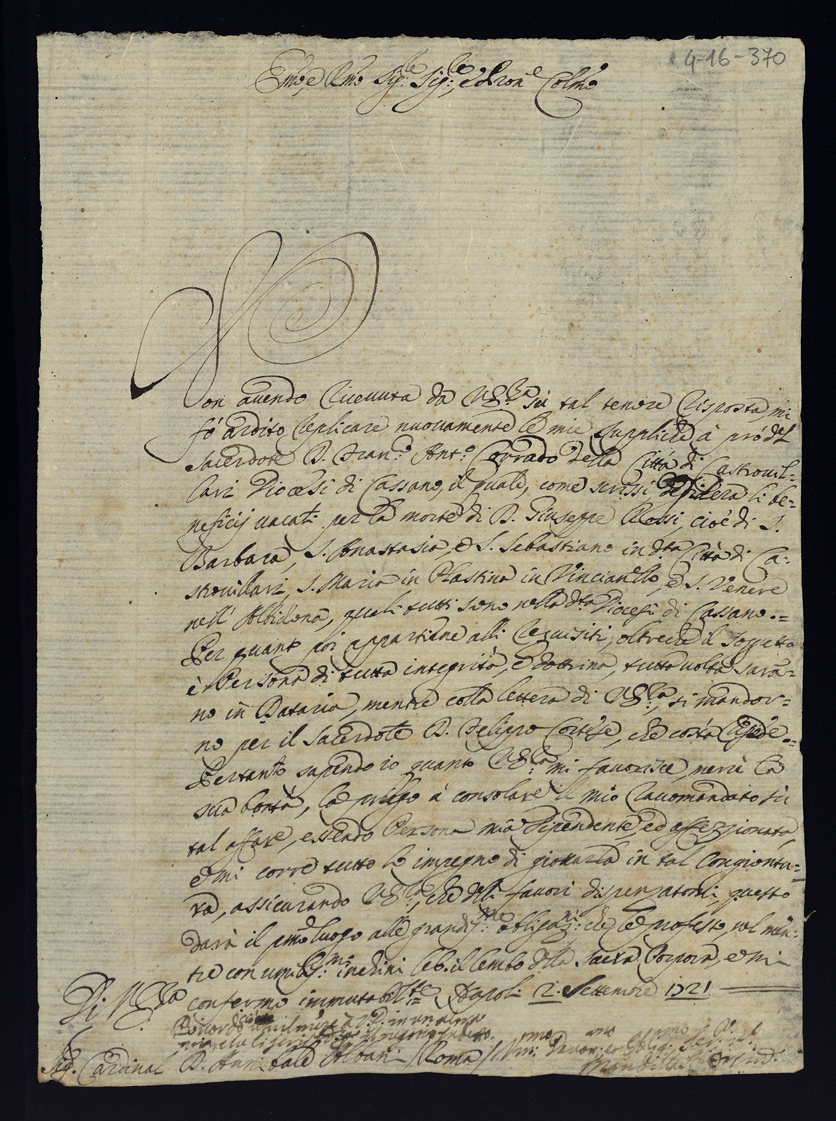 4-16-370
Emo, e Rmo Sig.re Sig.re, e Pron.e Colmo
Non avendo ricevuta da V. E.za su tal tenore risposta, mi
fò ardito replicare nuovamente le mie suppliche à prò del
Sacerdote D. Fran.co Ant.o Corrado della Città di Castrovil=
lari Diocesi di Cassano, il quale, come scrissi desidera li be=
neficij vacati per la morte di D. Giuseppe Rossi, cioè di S.
Barbara, S. Anastasia, e S. Sebastiano in dta Città di Ca=
strovillari, S. Maria in Plastina in, e S. Venere
nell' Albidona, quali tutti sono nella dta Diocesi di Cassano.=
Per quanto poi appartiene alli requisiti, oltreche il Soggetto
è Persona di tutta integrità, e dottrina, tutta volta sara=
no in Dataria, mentre colla lettera di V. E.za, si mandor=
no per il Sacerdote D. Felippo Cortese, che costà risiede.=
Pertanto sapendo io quanto V. E.za mi favorisce, mercè la
sua bontà, la priego à consolare il mio raccomandato su
tal affare, essendo Persona mia dipendente ed affezzionata,
e mi corre tutto lo impegno di giovarla in tal congiontu=
ra, assicurando V. E.za, che delli favori dispenzatomi questo
darà il pmo luogo alle grandis.me obligaz.ni che le professo, nel men=
tre con umilis.mi inchini le bacio il lembo della Sacra Porpora, e mi
confermo immutabilm.te Napoli 2. Settembre 1721
Di V. E.za
Ricordo in una
Sig. Cardinal D. Annibale Albani (Roma)